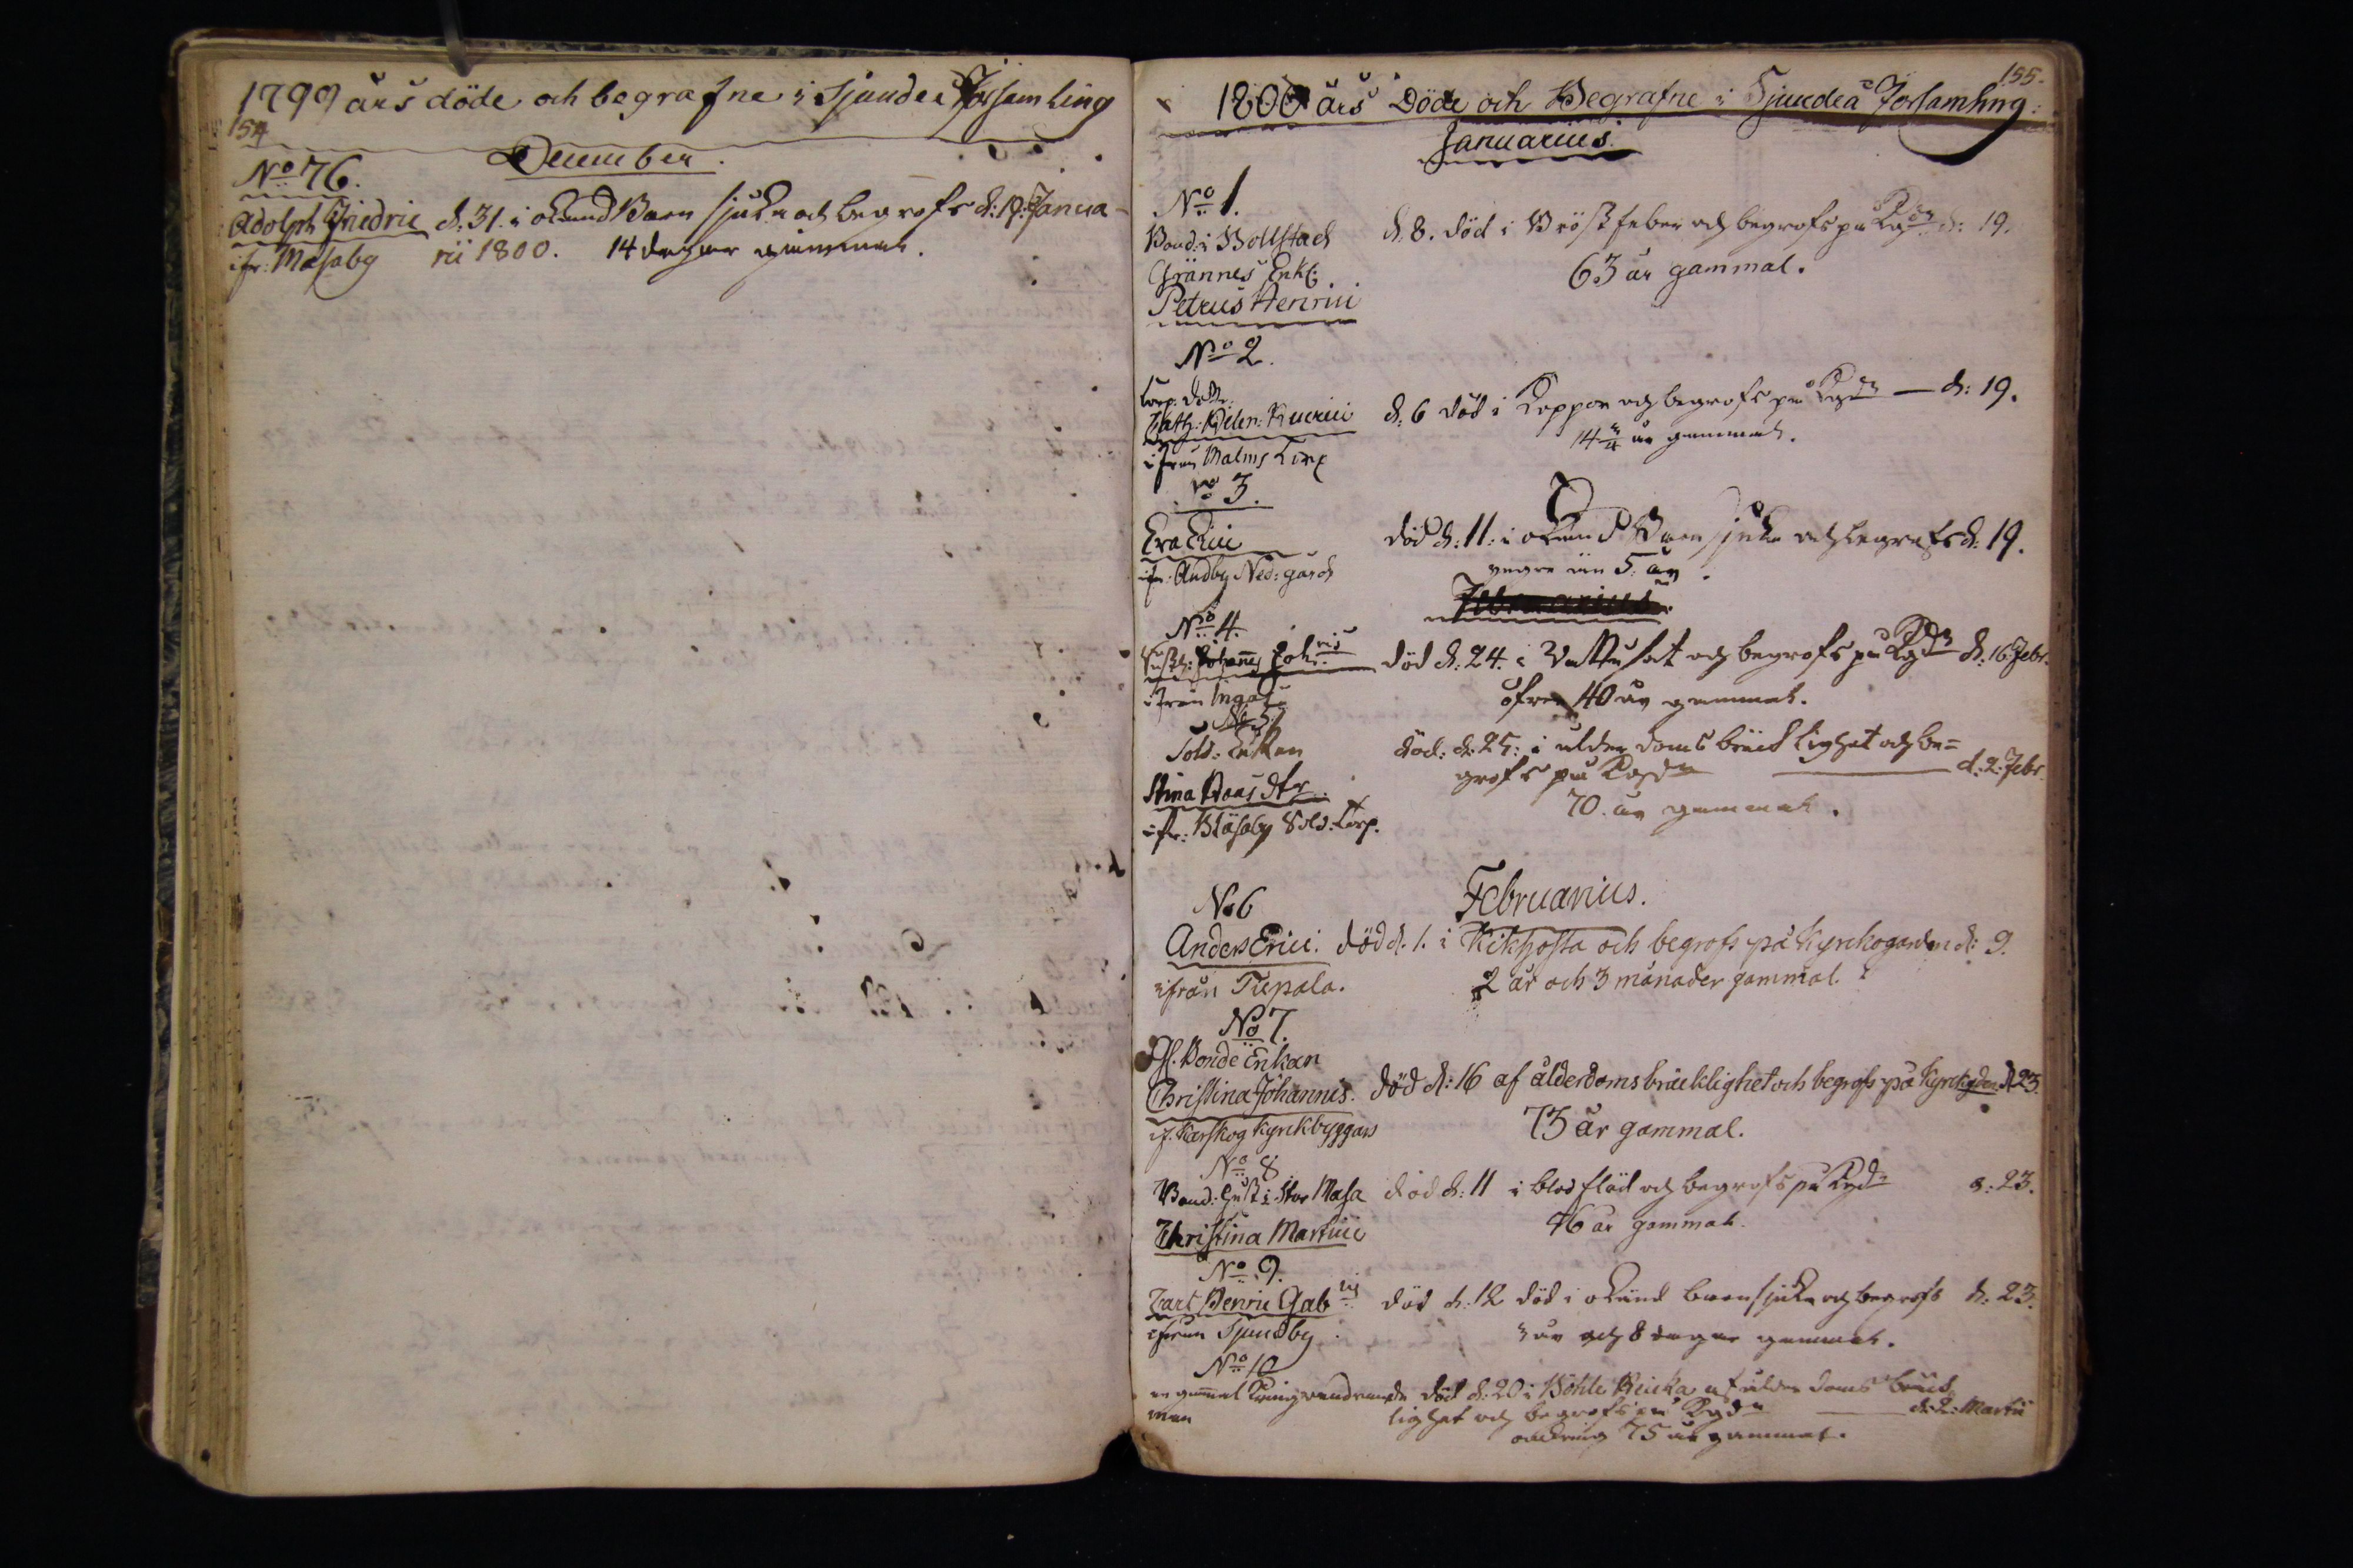 1799 års döde och begrafne i Sjundeå Församling
154
December.
No 76.
Adolph Friedric d. 31. i okänd Barnsjuka och begrofs d: 19: Janua-
ifr: Masaby rii 1800. 14 dagar gammal.
155.
1800 års Döde och Begrafne i Sjundeå Församling.
Januarius.
No 1.
Bond: i Bollstad d. 8. död i Bröstfeber och begrofs på Kgdn d: 19.
Grännes Enkl: 63 år gammal.
Petrus Henrici
No 2.
Torp: dottr.
Cath: Helen: d. 6 död i Koppor och begrofs på Kgdn — d: 19.
ifrån Malms Torp 14 år gammal.
No 3.
Eva död d: 11: i okänd Barnsjuka och begrofs d: 19.
ifr: Andby Ned: gård yngre än 5. år.
No 4.
Johannes Johis död d. 24. i Vattusot och begrofs på Kgdn d. 16 Febr.
ifrån Ingels öfver 40 år gammal.
No 5.
Sold: Enkan död: d. 25: i ålderdoms bräcklighet och be=
grofs på Kgdn — d. 2. Febr.
Stina Claas dtr. 70. år gammal.
ifr: Bläsaby Sold: Torp.
Februarius.
No 6
Anders Erici. död d. 1. i Kikhosta och begrofs på Kyrckogården d: 9.
ifrån Tupala. 2 år och 3 månader gammal.
No 7.
Gl. Bonde Enkan
Christina Johannis. död d: 16 af ålderdoms bräcklighet och begrofs på Kyrckgdn d. 23.
if. Karskog Kyrckbyggars 73 år gammal.
No 8
Bond: Hust: i Stor Masa död d: 11 i blodflöd och begrofs på Kgdn d: 23.
Christina Martini 46 år gammal.
No 9.
Carl Henric Gab död d: 12 död i okänd barnsjuka och begrofs d: 23.
ifrån Sjundby. 3 år och 8 dagar gammal.
No 10
en gammal Kringvandrande död d: 20 i Böhle Backa af ålderdoms bräck
man lighet och begrofs på Kgdn — d: 2: Martii
omkring 75 år gammal.